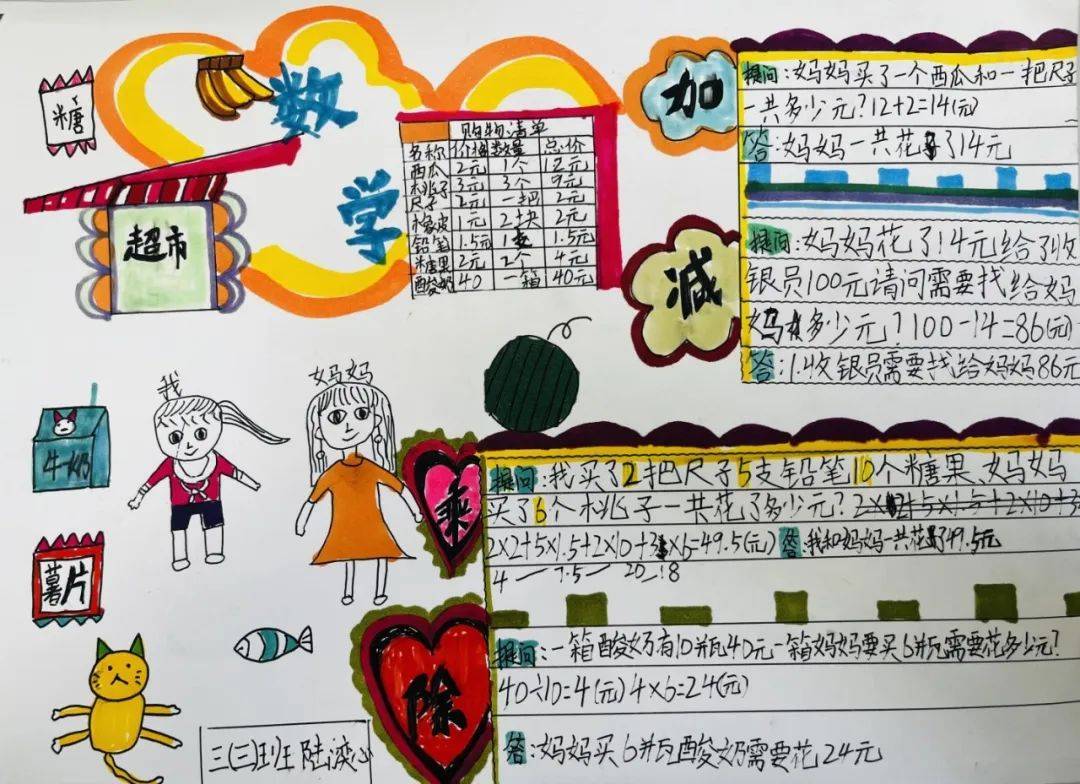 糖
数
学
超市
购物清单
名称 价格 数量 总价
西瓜 2元 1个 12元
桃子 3元 3个 9元
尺子 2元 一把 2元
橡皮 1元 2块 2元
铅笔 1.5元 1支 1.5元
糖果 2元 2个 4元
酸奶 40 一箱 40元
加
提问:妈妈买了一个西瓜和一把尺子
一共多少元?12+2=14(元)
答:妈妈一共花了14元
减
提问:妈妈花了14元给了收
银员100元请问需要找给妈
妈多少元?100-14=86(元)
答:1.收银员需要找给妈妈86元
我
妈妈
牛奶
薯片
乘
提问:我买了2把尺子5支铅笔10个糖果、妈妈
买了6个桃子一共花了多少元?
2×2+5×1.5+2×10+3×6=49.5(元) 答:我和妈妈一共花了49.5元
4 7.5 20 18
除
提问:一箱酸奶有10瓶40元一箱妈妈要买6瓶需要花多少元?
40÷10=4(元) 4×6=24(元)
答:妈妈买6瓶酸奶需要花24元
三(三)班 陆滢心